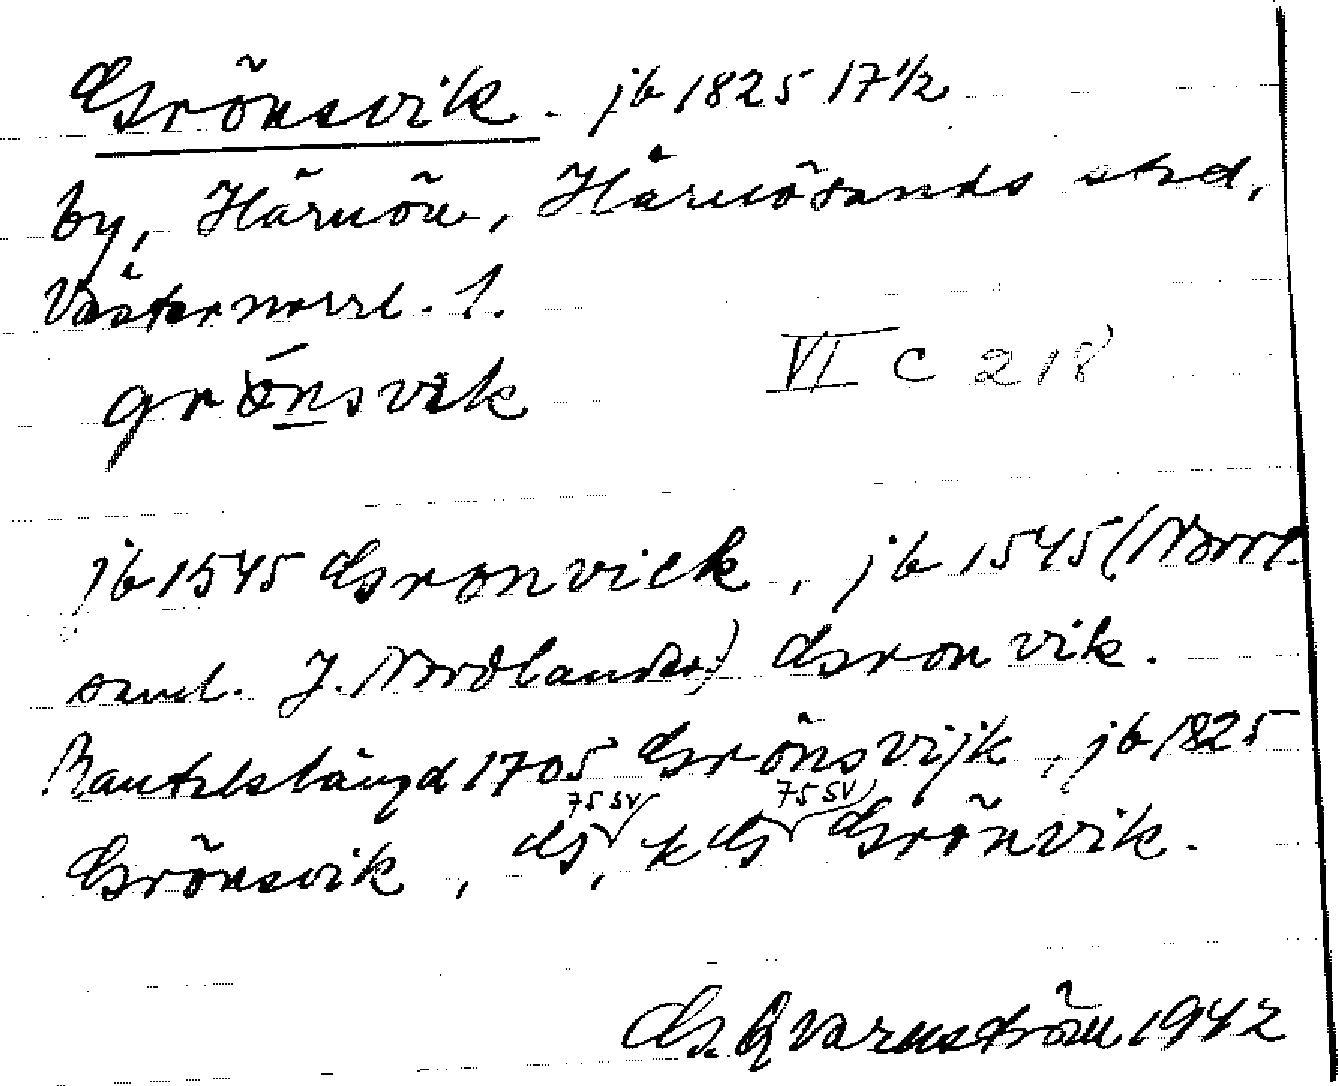 Grönsvik. jb 1825 17½
by, Härnön, Härnösands stad,
Västernorrl. l.
grönsvik
VI C 218
jb 1545 Gronvick, jb 1545 (Norrl.
saml. J. Nordlander) Gronvik.
Mantalslängd 1705 Grönsvijk, jb 1825
75 SV 75 SV
Grönsvik, GS, k GS Grönvik.
G. Qvarnström 1942